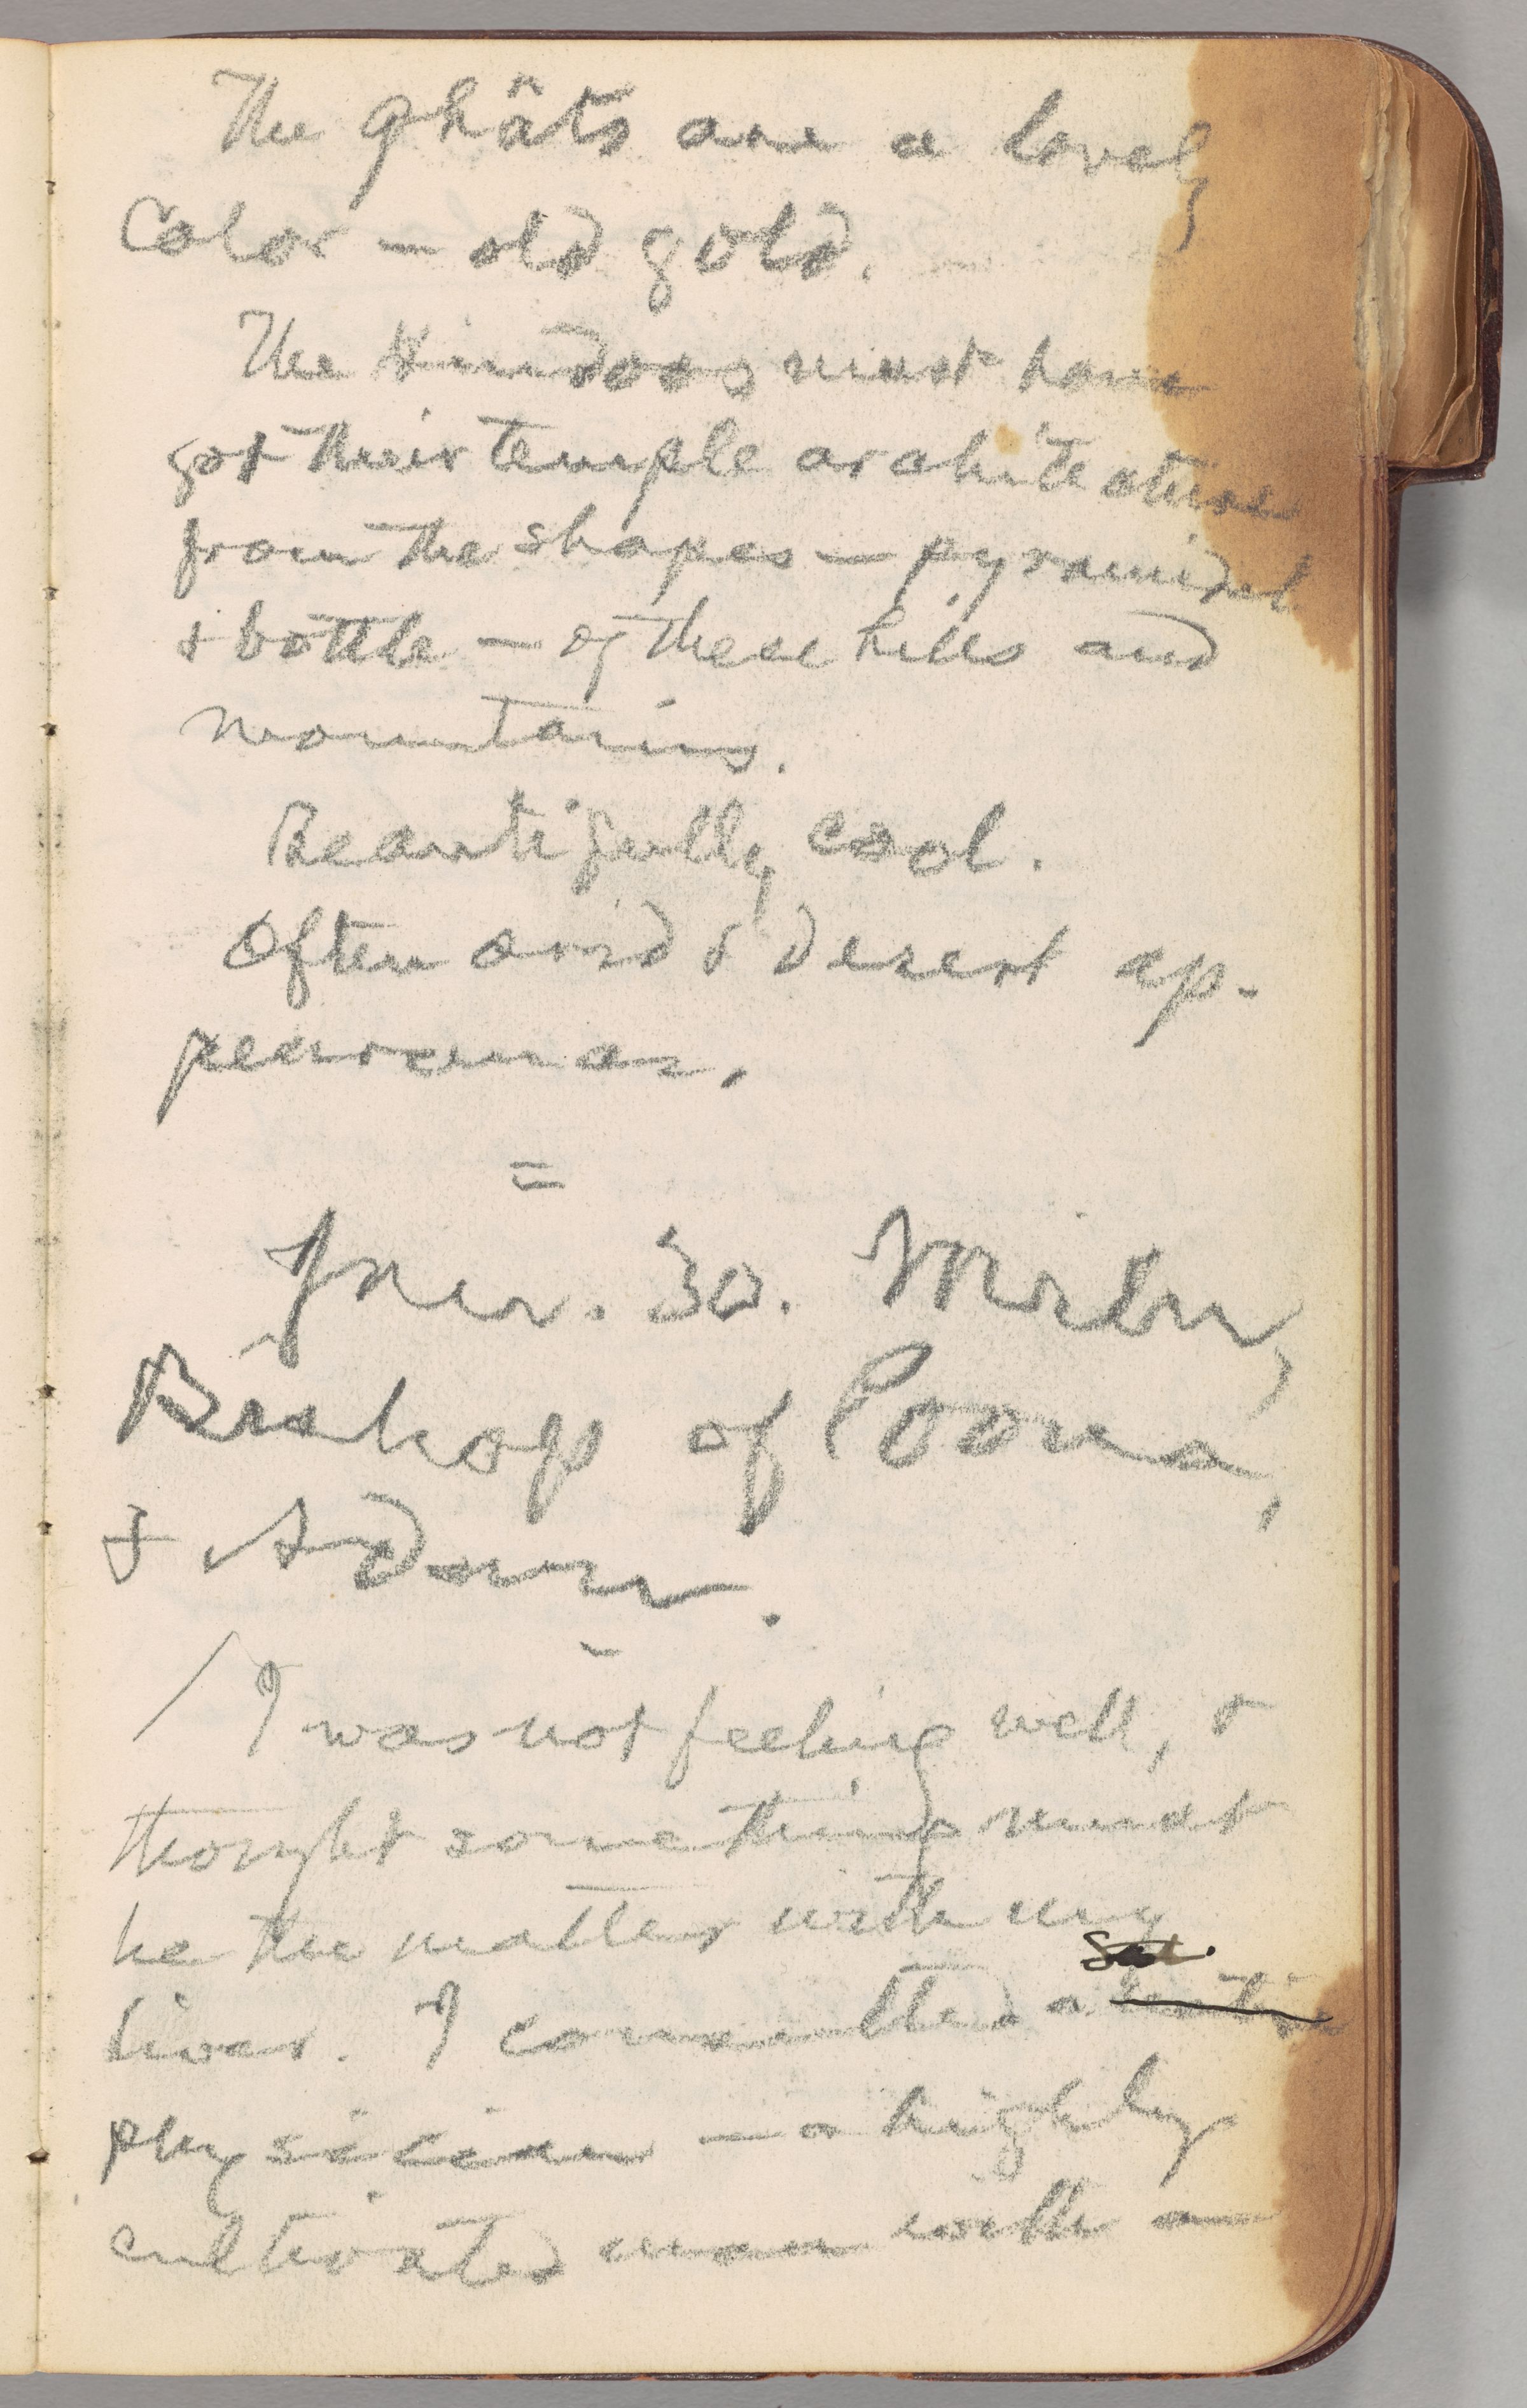 The ghâts are a lovely
color — old gold.
The Hindoos must have
got their temple architecture
from the shapes — pyramidal
& bottle — of these hills and
mountains.
Beautifully cool.
Often arid & desert ap-
pearance.
=
Jner. 30.
Bishop of Poona,
&
/ I was not feeling well, &
thought something must
be the matter with my
liver. I consulted a
physician — a highly
cultivated man with a